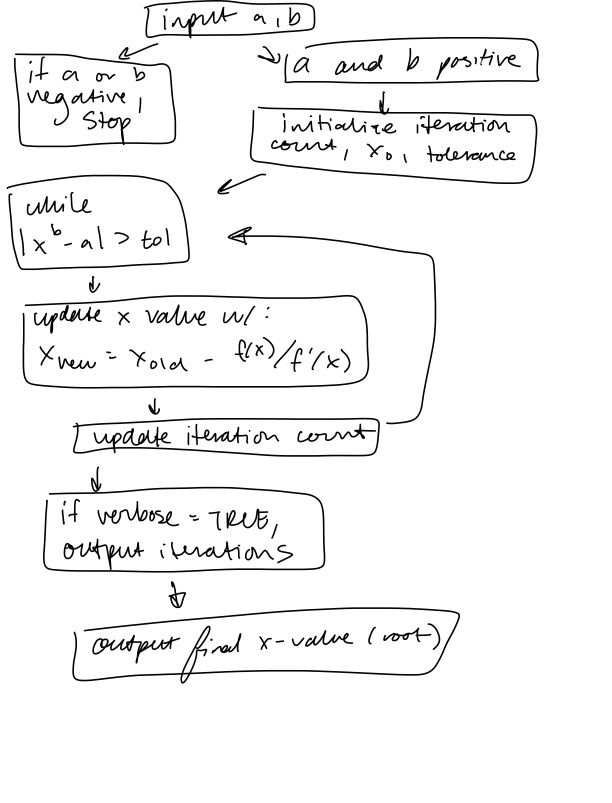 input a, b
if a or b
negative,
Stop
a and b positive
initialize iteration
count, x₀, tolerance
while
|xᵇ - a| > tol
update x value w/:
xnew = xold - f(x)/f'(x)
update iteration count
if verbose = TRUE,
output iterations
output final x-value (root)